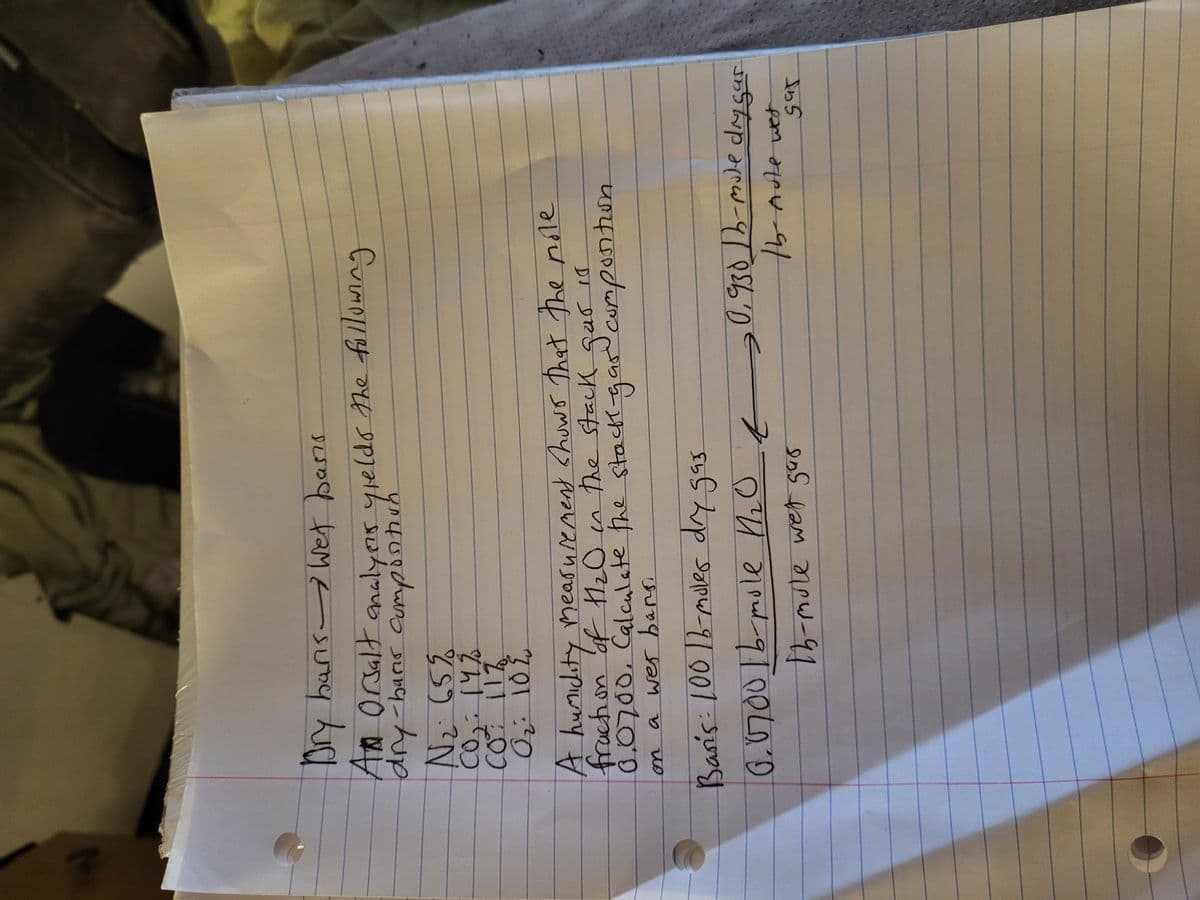 Dry basis → Wet basis
An Orsalt analysis yields the following
dry-basis composition
N₂: 65%
CO₂: 14%
CO: 11%
O₂: 10%
A humidity measurement shows that the mole
fraction of H₂O in the stack gas is
0.0700. Calculate the stack-gas composition
on a wer basis.
Basis: 100 lb-moles dry gas
0.0700 lb-mole H₂O ↔ 0.930 lb-mole dry gas
lb-mole wet gas lb-mole wet
gas